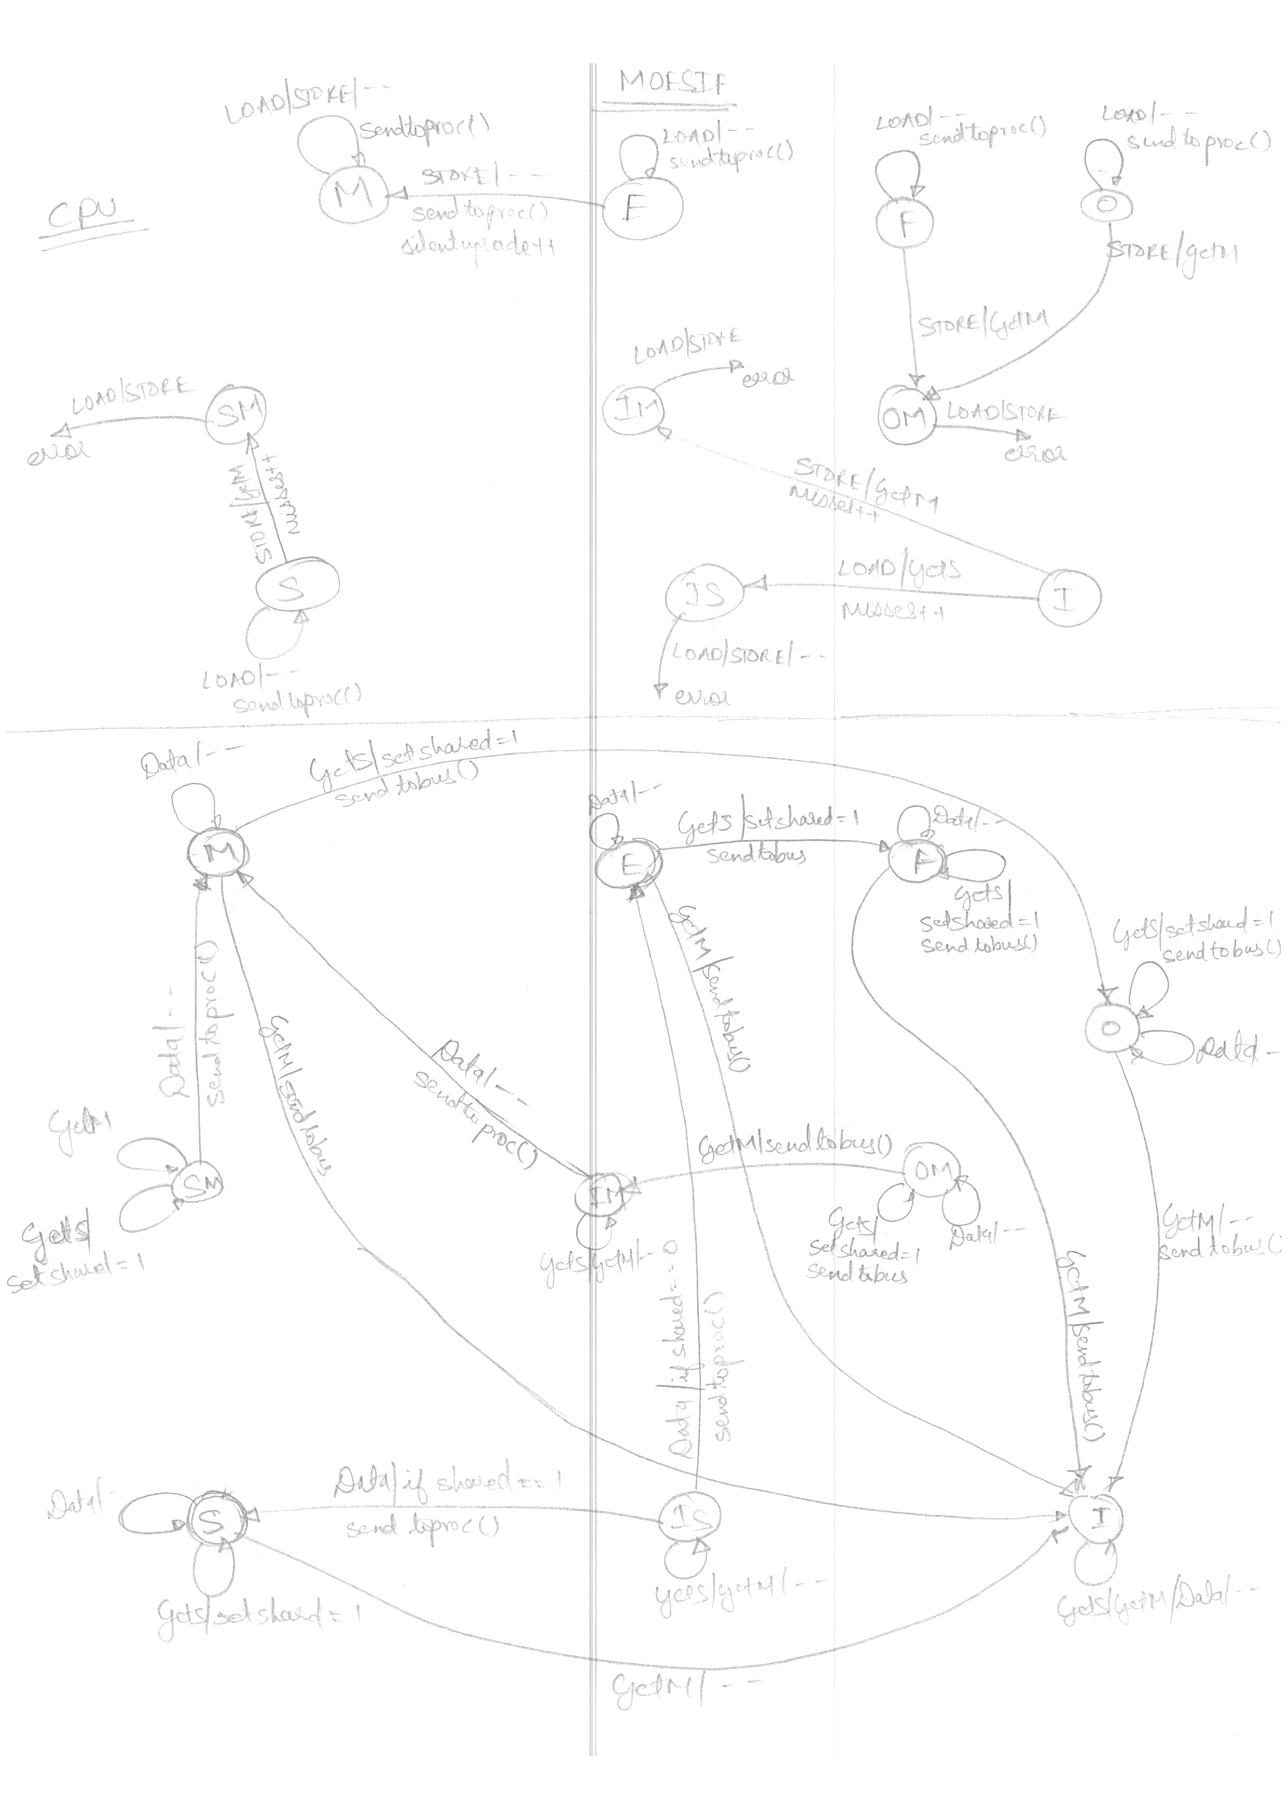 MOESIF
CPU
LOAD/STORE/--
sendtoproc()
M
STORE/--
sendtoproc()
silentupgrade++
LOAD/--
sendtoproc()
E
LOAD/--
sendtoproc()
F
LOAD/--
sendtoproc()
O
STORE/GetM
STORE/GetM
OM
LOAD/STORE
error
LOAD/STORE
error
IM
LOAD/STORE
error
SM
STORE/GetM
misses++
S
LOAD/--
sendtoproc()
STORE/GetM
misses++
LOAD/GetS
misses++
I
IS
LOAD/STORE/--
error
Data/--
M
GetS/setshared=1
sendtobus()
Data/--
E
GetS/setshared=1
sendtobus
Data/--
F
GetS/
setshared=1
sendtobus()
GetS/setshared=1
sendtobus()
O
Data/-
Data/--
sendtoproc()
GetM/sendtobus
Data/--
sendtoproc()
GetM/sendtobus()
GetM
SM
GetS/
setshared=1
IM
GetS/GetM/--
GetM/sendtobus()
OM
GetS/
setshared=1
sendtobus
Data/--
GetM/--
sendtobus()
GetM/sendtobus()
Data/if shared==0
sendtoproc()
Data/-
S
Data/if shared==1
sendtoproc()
IS
I
GetS/setshared=1
GetS/GetM/--
GetS/GetM/Data/--
GetM/--